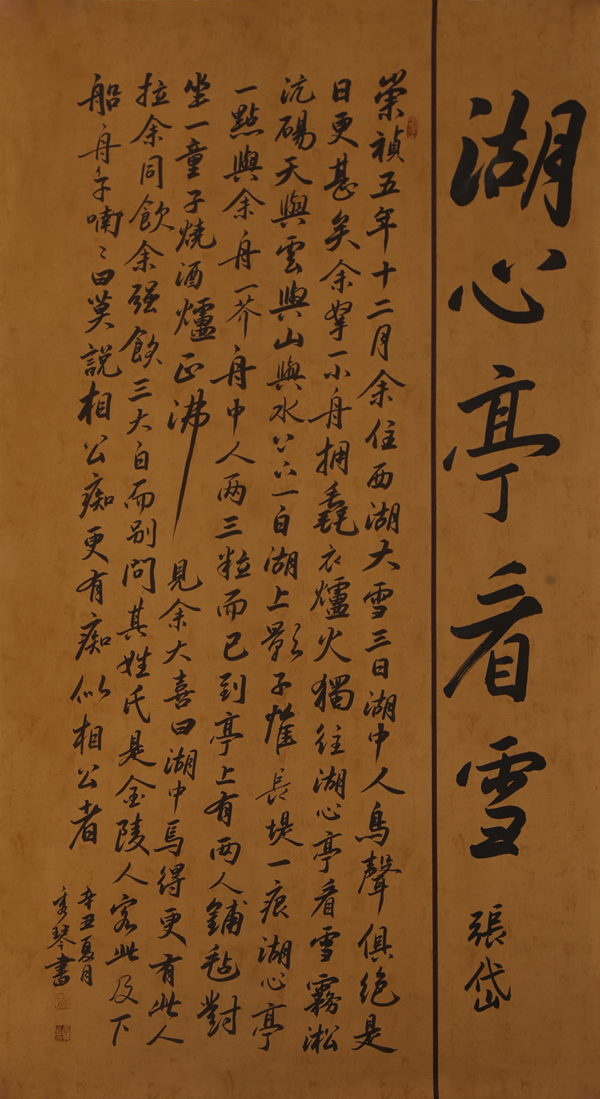 湖心亭看雪 張岱
崇禎五年十二月余住西湖大雪三日湖中人鳥聲俱絶是
日更甚矣余拏一小舟拥毳衣爐火獨往湖心亭看雪霧淞
沆碭天與雲與山與水上下一白湖上影子惟長堤一痕湖心亭
一點與余舟一芥舟中人两三粒而已到亭上有两人鋪毡對
坐一童子燒酒爐正沸見余大喜曰湖中焉得更有此人
拉余同飲余强飲三大白而别問其姓氏是金陵人客此及下
船舟子喃〻曰莫說相公痴更有痴似相公者
辛丑夏月
秀琴書